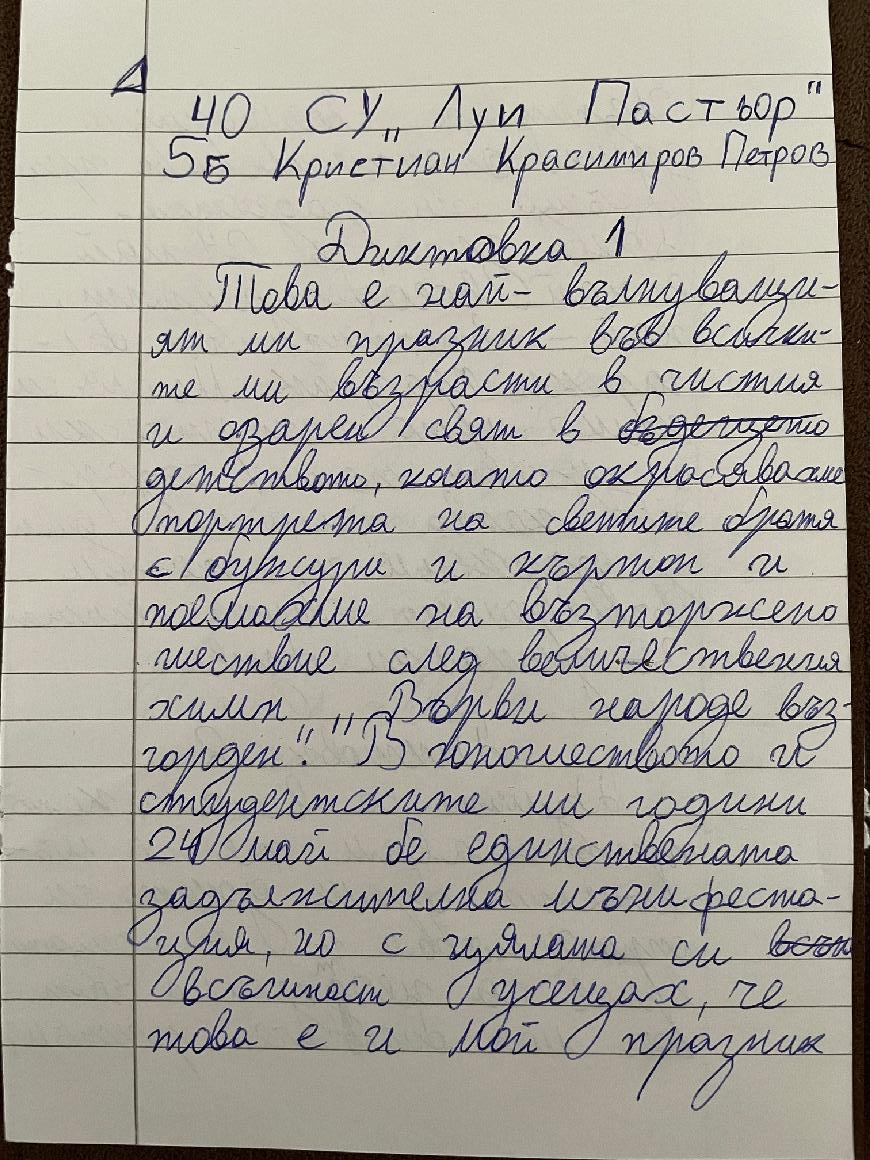 40 СУ „Луи Пастьор"
5б Кристиан Красимиров Петров
Диктовка 1
Това е най- вълнуващи-
ят ми празник във всички-
те ми възрасти в чистия
и озарен свят в
детството, когато окрасявахме
портрета на светите братя
с бужури и кърпон и
поемахме на възторжено
шествие след величествения
химн „Върви народе въз-
горден". В юношеството и
студентските ми години
24 май бе единствената
задължителна мънифеста-
ция, но с цялата си
всъгиност усещах, че
това е и мой празник